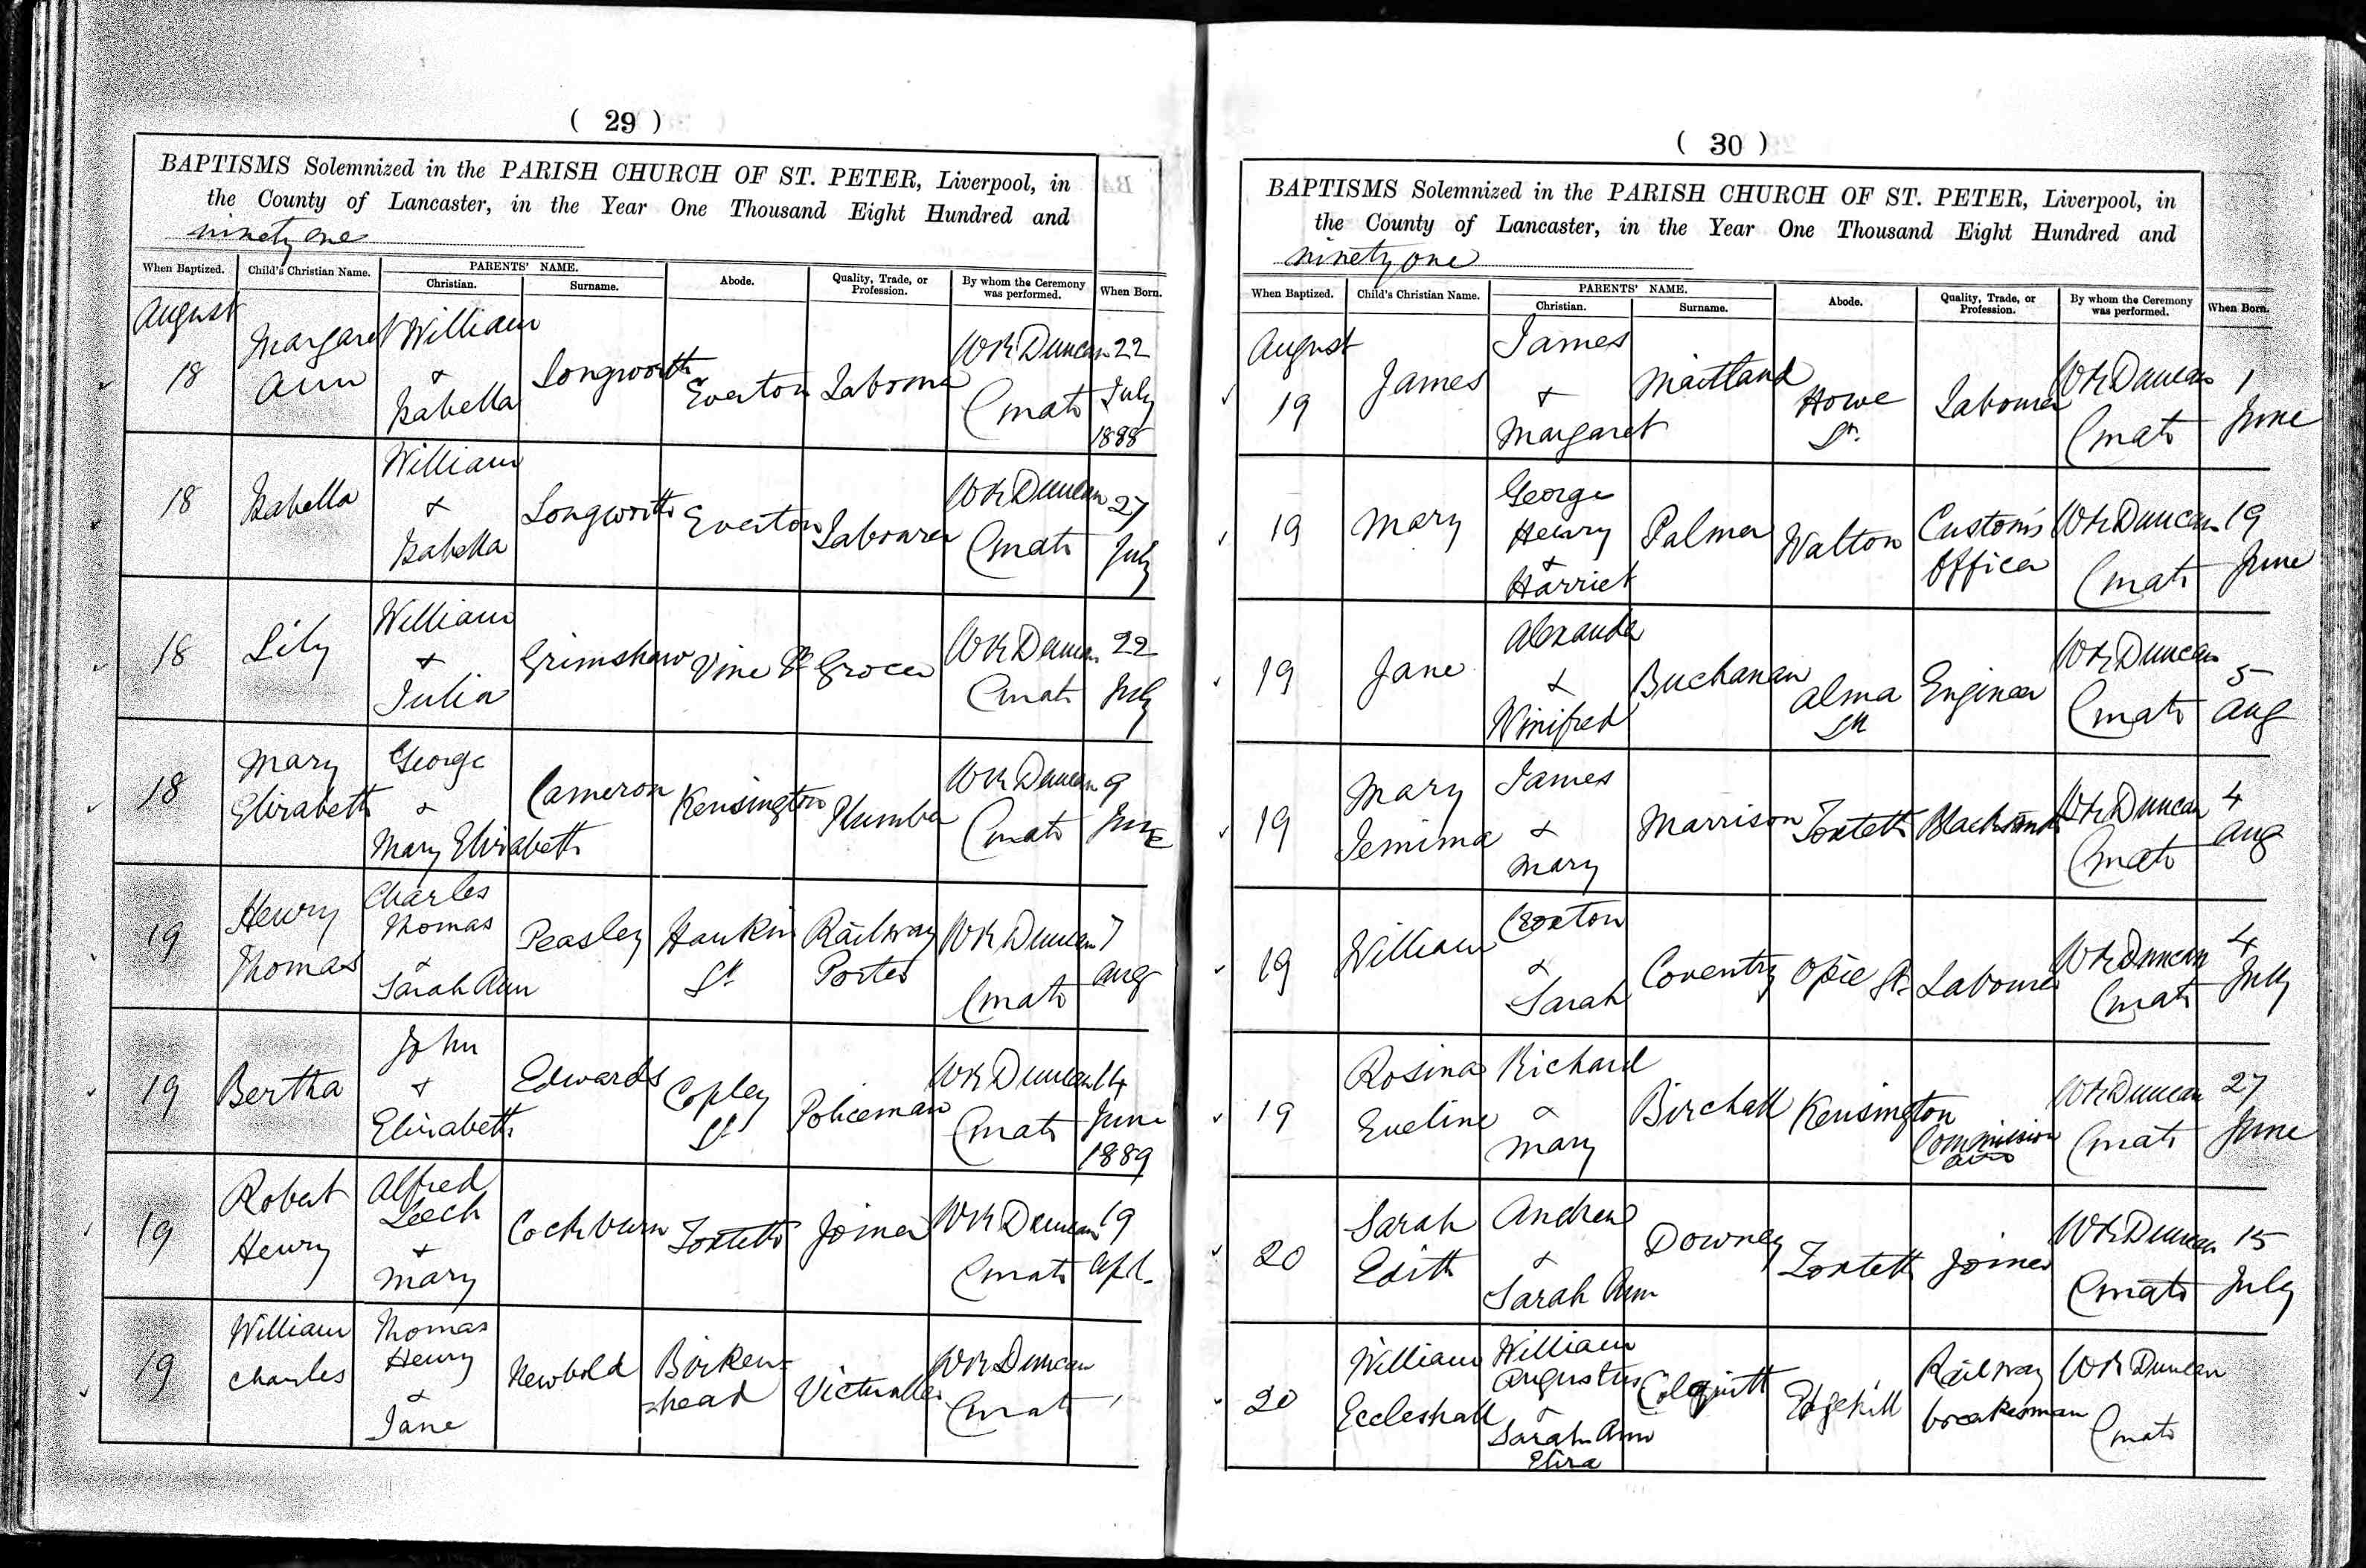 ( 29 )
BAPTISMS Solemnized in the PARISH CHURCH OF ST. PETER, Liverpool, in
the County of Lancaster, in the Year One Thousand Eight Hundred and
ninety one
When Baptized. Child's Christian Name. PARENTS' NAME. Christian. Surname. Abode. Quality, Trade, or Profession. By whom the Ceremony was performed. When Born.
August
18 Margaret Ann William & Isabella Longworth Everton Labourer W K Duncan Curate 22 July 1888
18 Isabella William & Isabella Longworth Everton Labourer W K Duncan Curate 27 July
18 Lily William & Julia Grimshaw Vine St Grocer W K Duncan Curate 22 July
18 Mary Elizabeth George & Mary Elizabeth Cameron Kensington Plumber W K Duncan Curate 9 June
19 Henry Thomas Charles Thomas & Sarah Ann Peasley Hankin St Railway Porter W K Duncan Curate 7 Aug
19 Bertha John & Elizabeth Edwards Copley St Policeman W K Duncan Curate 14 June 1889
19 Robert Henry Alfred Leech & Mary Cockburn Toxteth Joiner W K Duncan Curate 19 Apl.
19 William Charles Thomas Henry & Jane Newbold Birken=head Victualler W K Duncan Curate
( 30 )
BAPTISMS Solemnized in the PARISH CHURCH OF ST. PETER, Liverpool, in
the County of Lancaster, in the Year One Thousand Eight Hundred and
ninety one
When Baptized. Child's Christian Name. PARENTS' NAME. Christian. Surname. Abode. Quality, Trade, or Profession. By whom the Ceremony was performed. When Born.
August
19 James James & Margaret Maitland Howe St. Labourer W K Duncan Curate 1 June
19 Mary George Henry & Harriet Palmer Walton Customs Officer W K Duncan Curate 19 June
19 Jane Alexander & Winifred Buchanan Alma St Engineer W K Duncan Curate 5 Aug
19 Mary Jemima James & Mary Marrison Toxteth Blacksmith W K Duncan Curate 4 Aug
19 William Croxton & Sarah Coventry Opie St. Labourer W K Duncan Curate 4 July
19 Rosina Eveline Richard & Mary Birchall Kensington Commission W K Duncan Curate 27 June
20 Sarah Edith Andrew & Sarah Ann Downey Toxteth Joiner W K Duncan Curate 15 July
20 William Eccleshall William Augustus & Sarah Ann Eliza Colquitt Edgehill Railway breaksman W K Duncan Curate